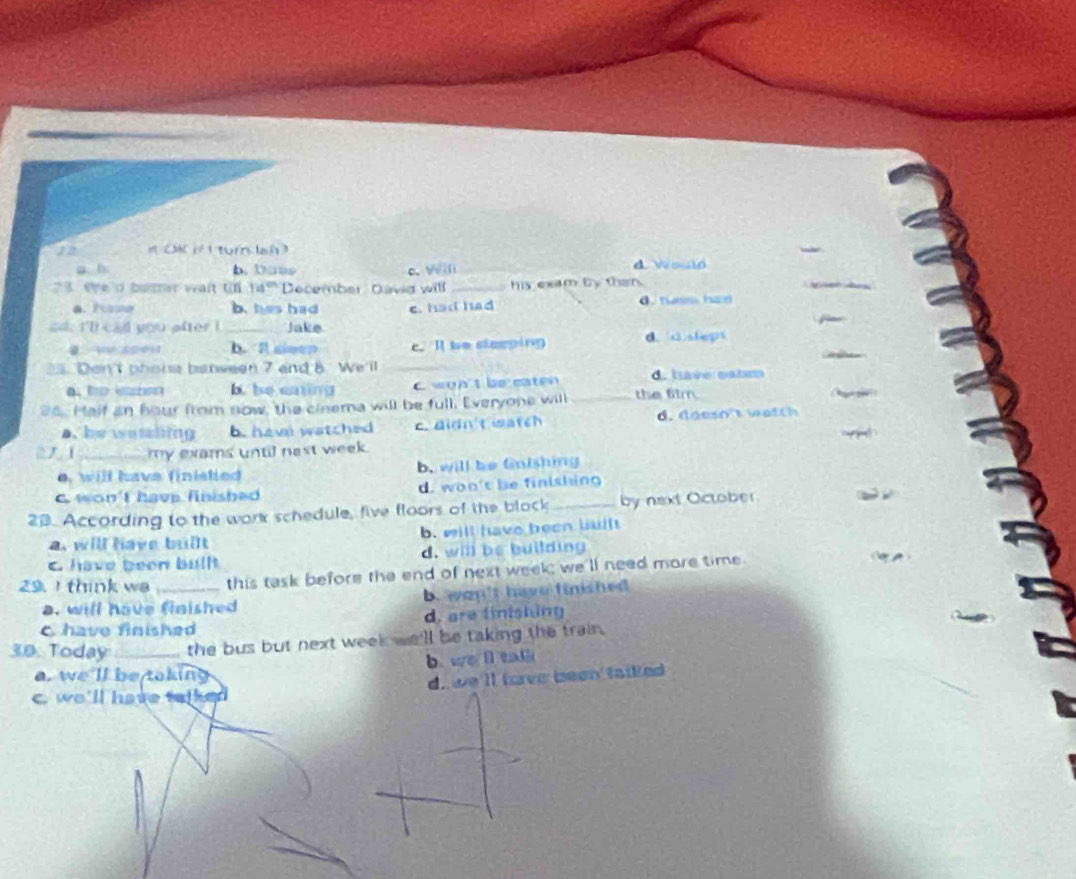 if I turn left?
b. Does c. Will d. Would
till 14th December. David will ______ his exam by then.
a. have b. has had c. had had
I'll call you after I ______ Jake.
b. 'll sleep c. 'll be sleeping d. 'd slept
Don't phone between 7 and 8. We'll ______
b. be eating c. won't be eaten d. have eaten
Half an hour from now, the cinema will be full. Everyone will ______ the film.
a. be watching b. have watched c. didn't watch d. doesn't watch
27. I ______ my exams until next week.
a. will have finished b. will be finishing
c. won't have finished d. won't be finishing
28. According to the work schedule, five floors of the block ______ by next October.
a. will have built b. will have been built
c. have been built d. will be building
29. I think we ______ this task before the end of next week; we'll need more time.
a. will have finished b. won't have finished
c. have finished d. are finishing
30. Today ______ the bus but next week we'll be taking the train.
a. we'll be taking b. we'll talk
c. we'll have talked d. we'll have been talked